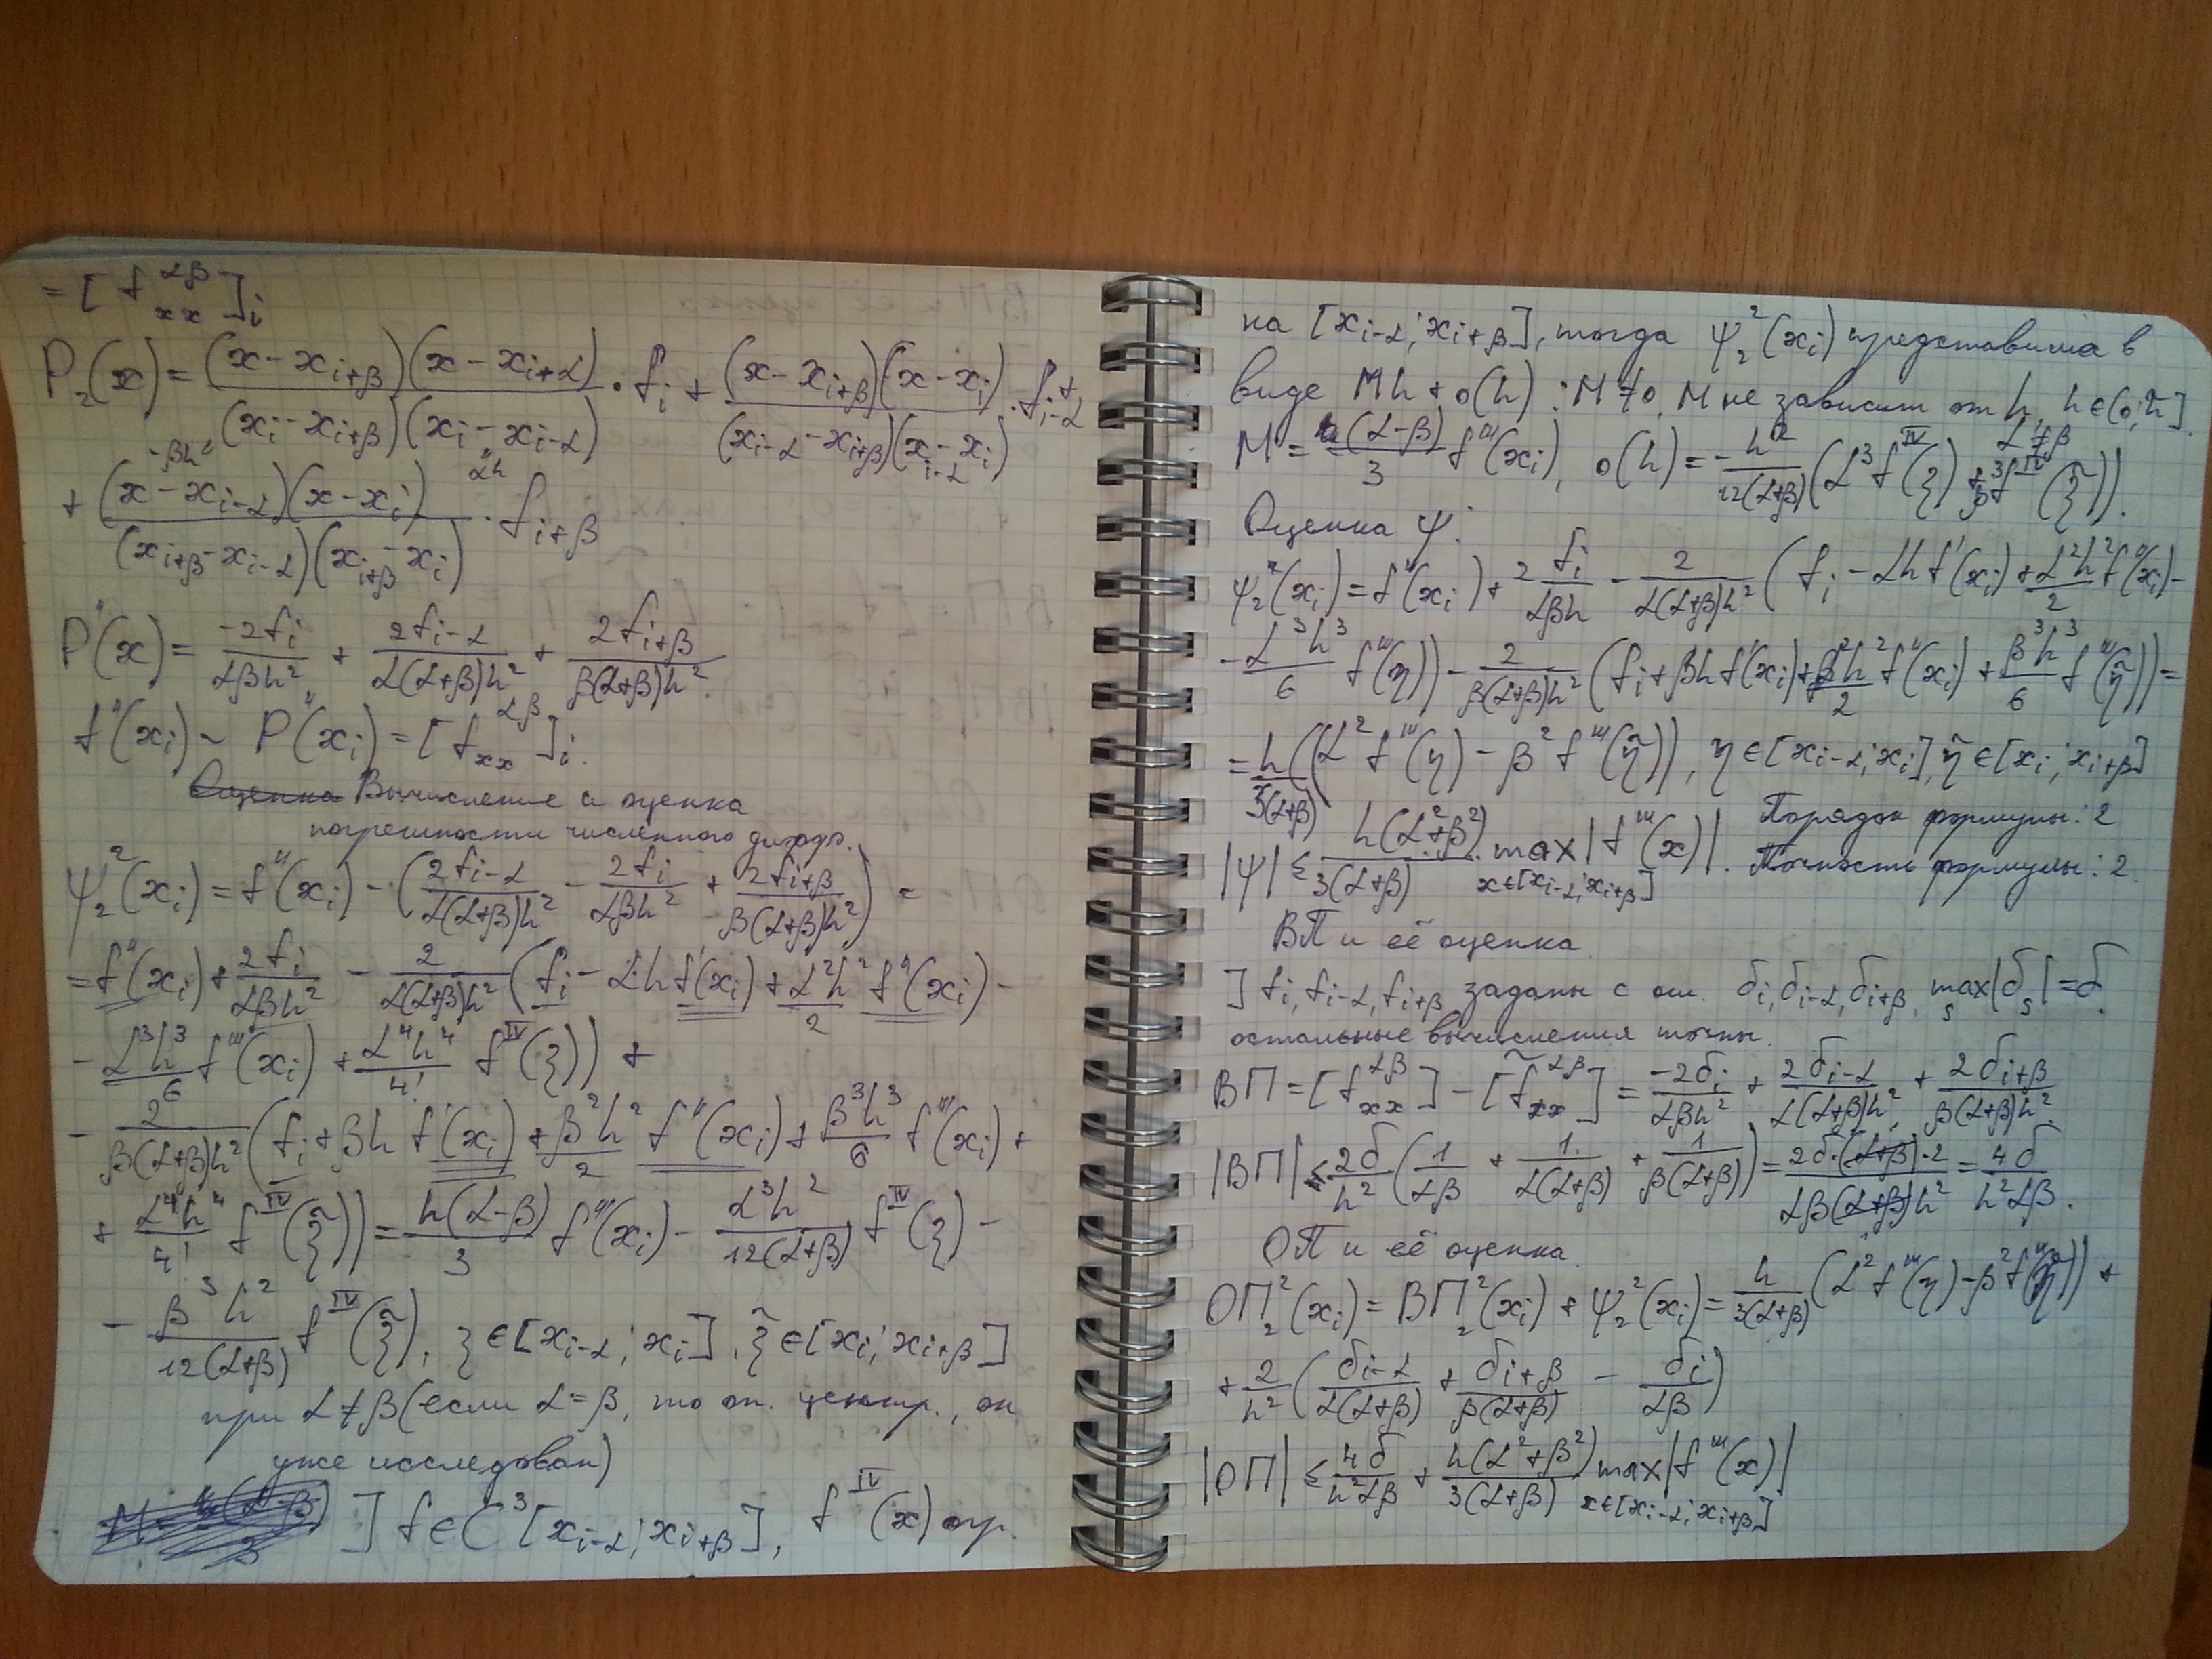 = [ f^{αβ}_{xx} ]_i
P_2(x) = \frac{(x-x_{i+β})(x-x_{i+α})}{(x_i-x_{i+β})(x_i-x_{i-α})} · f_i + \frac{(x-x_{i+β})(x-x_i)}{(x_{i-α}-x_{i+β})(x_{i-α}-x_i)} · f_{i-α} +
-βh" "αh
+ \frac{(x-x_{i-α})(x-x_i)}{(x_{i+β}-x_{i-α})(x_{i+β}-x_i)} · f_{i+β}
P''(x) = \frac{-2f_i}{αβh^2} + \frac{2f_{i-α}}{α(α+β)h^2} + \frac{2f_{i+β}}{β(α+β)h^2}.
f''(x_i) ~ P''(x_i) = [ f^{αβ}_{xx} ]_i.
Вычисление и оценка
погрешности численного дифф.
ψ_2^2(x_i) = f''(x_i) - (\frac{2f_{i-α}}{α(α+β)h^2} - \frac{2f_i}{αβh^2} + \frac{2f_{i+β}}{β(α+β)h^2}) =
= f''(x_i) + \frac{2f_i}{αβh^2} - \frac{2}{α(α+β)h^2}(f_i - αhf'(x_i) + \frac{α^2h^2}{2}f''(x_i) -
- \frac{α^3h^3}{6}f'''(x_i) + \frac{α^4h^4}{4!} f^{IV}(ξ)) +
- \frac{2}{β(α+β)h^2}(f_i + βh f'(x_i) + \frac{β^2h^2}{2} f''(x_i) + \frac{β^3h^3}{6} f'''(x_i) +
+ \frac{α^4h^4}{4!} f^{IV}(\tilde{ξ})) = \frac{h(α-β)}{3} f'''(x_i) - \frac{α^3h^2}{12(α+β)} f^{IV}(ξ) -
- \frac{β^3h^2}{12(α+β)} f^{IV}(\tilde{ξ}), ξ ∈ [x_{i-α}; x_i], \tilde{ξ} ∈ [x_i; x_{i+β}]
при α ≠ β (если α = β, то оп. центр., он
уже исследован)
] f ∈ C^3[x_{i-α}; x_{i+β}], f^{IV}(x) огр.
на [x_{i-α}; x_{i+β}], тогда ψ_2^2(x_i) представима в
виде Mh + o(h) : M ≠ 0, M не зависит от h, h ∈ (0; \tilde{h}]
M = \frac{(α-β)}{3} f'''(x_i), o(h) = -\frac{h^2}{12(α+β)}(α^3 f^{IV}(ξ) + β^3 f^{IV}(\tilde{ξ})). α ≠ β
Оценка ψ:
ψ_2^2(x_i) = f''(x_i) + 2\frac{f_i}{αβh} - \frac{2}{α(α+β)h^2}(f_i - αhf'(x_i) + \frac{α^2h^2}{2}f''(x_i) -
- \frac{α^3h^3}{6} f'''(η)) - \frac{2}{β(α+β)h^2}(f_i + βhf'(x_i) + \frac{β^2h^2}{2}f''(x_i) + \frac{β^3h^3}{6} f'''(\tilde{η})) =
= \frac{h}{3(α+β)}(α^2 f'''(η) - β^2 f'''(\tilde{η})), η ∈ [x_{i-α}; x_i], \tilde{η} ∈ [x_i; x_{i+β}]
|ψ| ≤ \frac{h(α^2+β^2)}{3(α+β)} max_{x∈[x_{i-α}; x_{i+β}]} |f'''(x)|. Порядок формулы: 2
Точность формулы: 2.
ВП и её оценка
] f_i, f_{i-α}, f_{i+β} заданы с ош. δ_i, δ_{i-α}, δ_{i+β}, max_s |δ_s| = δ.
остальные вычисления точны.
ВП = [ f^{αβ}_{xx} ] - [ \tilde{f}^{αβ}_{xx} ] = \frac{-2δ_i}{αβh^2} + \frac{2δ_{i-α}}{α(α+β)h^2} + \frac{2δ_{i+β}}{β(α+β)h^2}
|ВП| ≤ \frac{2δ}{h^2}(\frac{1}{αβ} + \frac{1}{α(α+β)} + \frac{1}{β(α+β)}) = \frac{2δ·(α+β)·2}{αβ(α+β)h^2} = \frac{4δ}{h^2αβ}.
ОП и её оценка
ОП_2^2(x_i) = ВП_2^2(x_i) + ψ_2^2(x_i) = \frac{h}{3(α+β)}(α^2f'''(η) - β^2f'''(\tilde{η})) +
+ \frac{2}{h^2}(\frac{δ_{i-α}}{α(α+β)} + \frac{δ_{i+β}}{β(α+β)} - \frac{δ_i}{αβ})
|ОП| ≤ \frac{4δ}{h^2αβ} + \frac{h(α^2+β^2)}{3(α+β)} max_{x∈[x_{i-α}; x_{i+β}]} |f'''(x)|